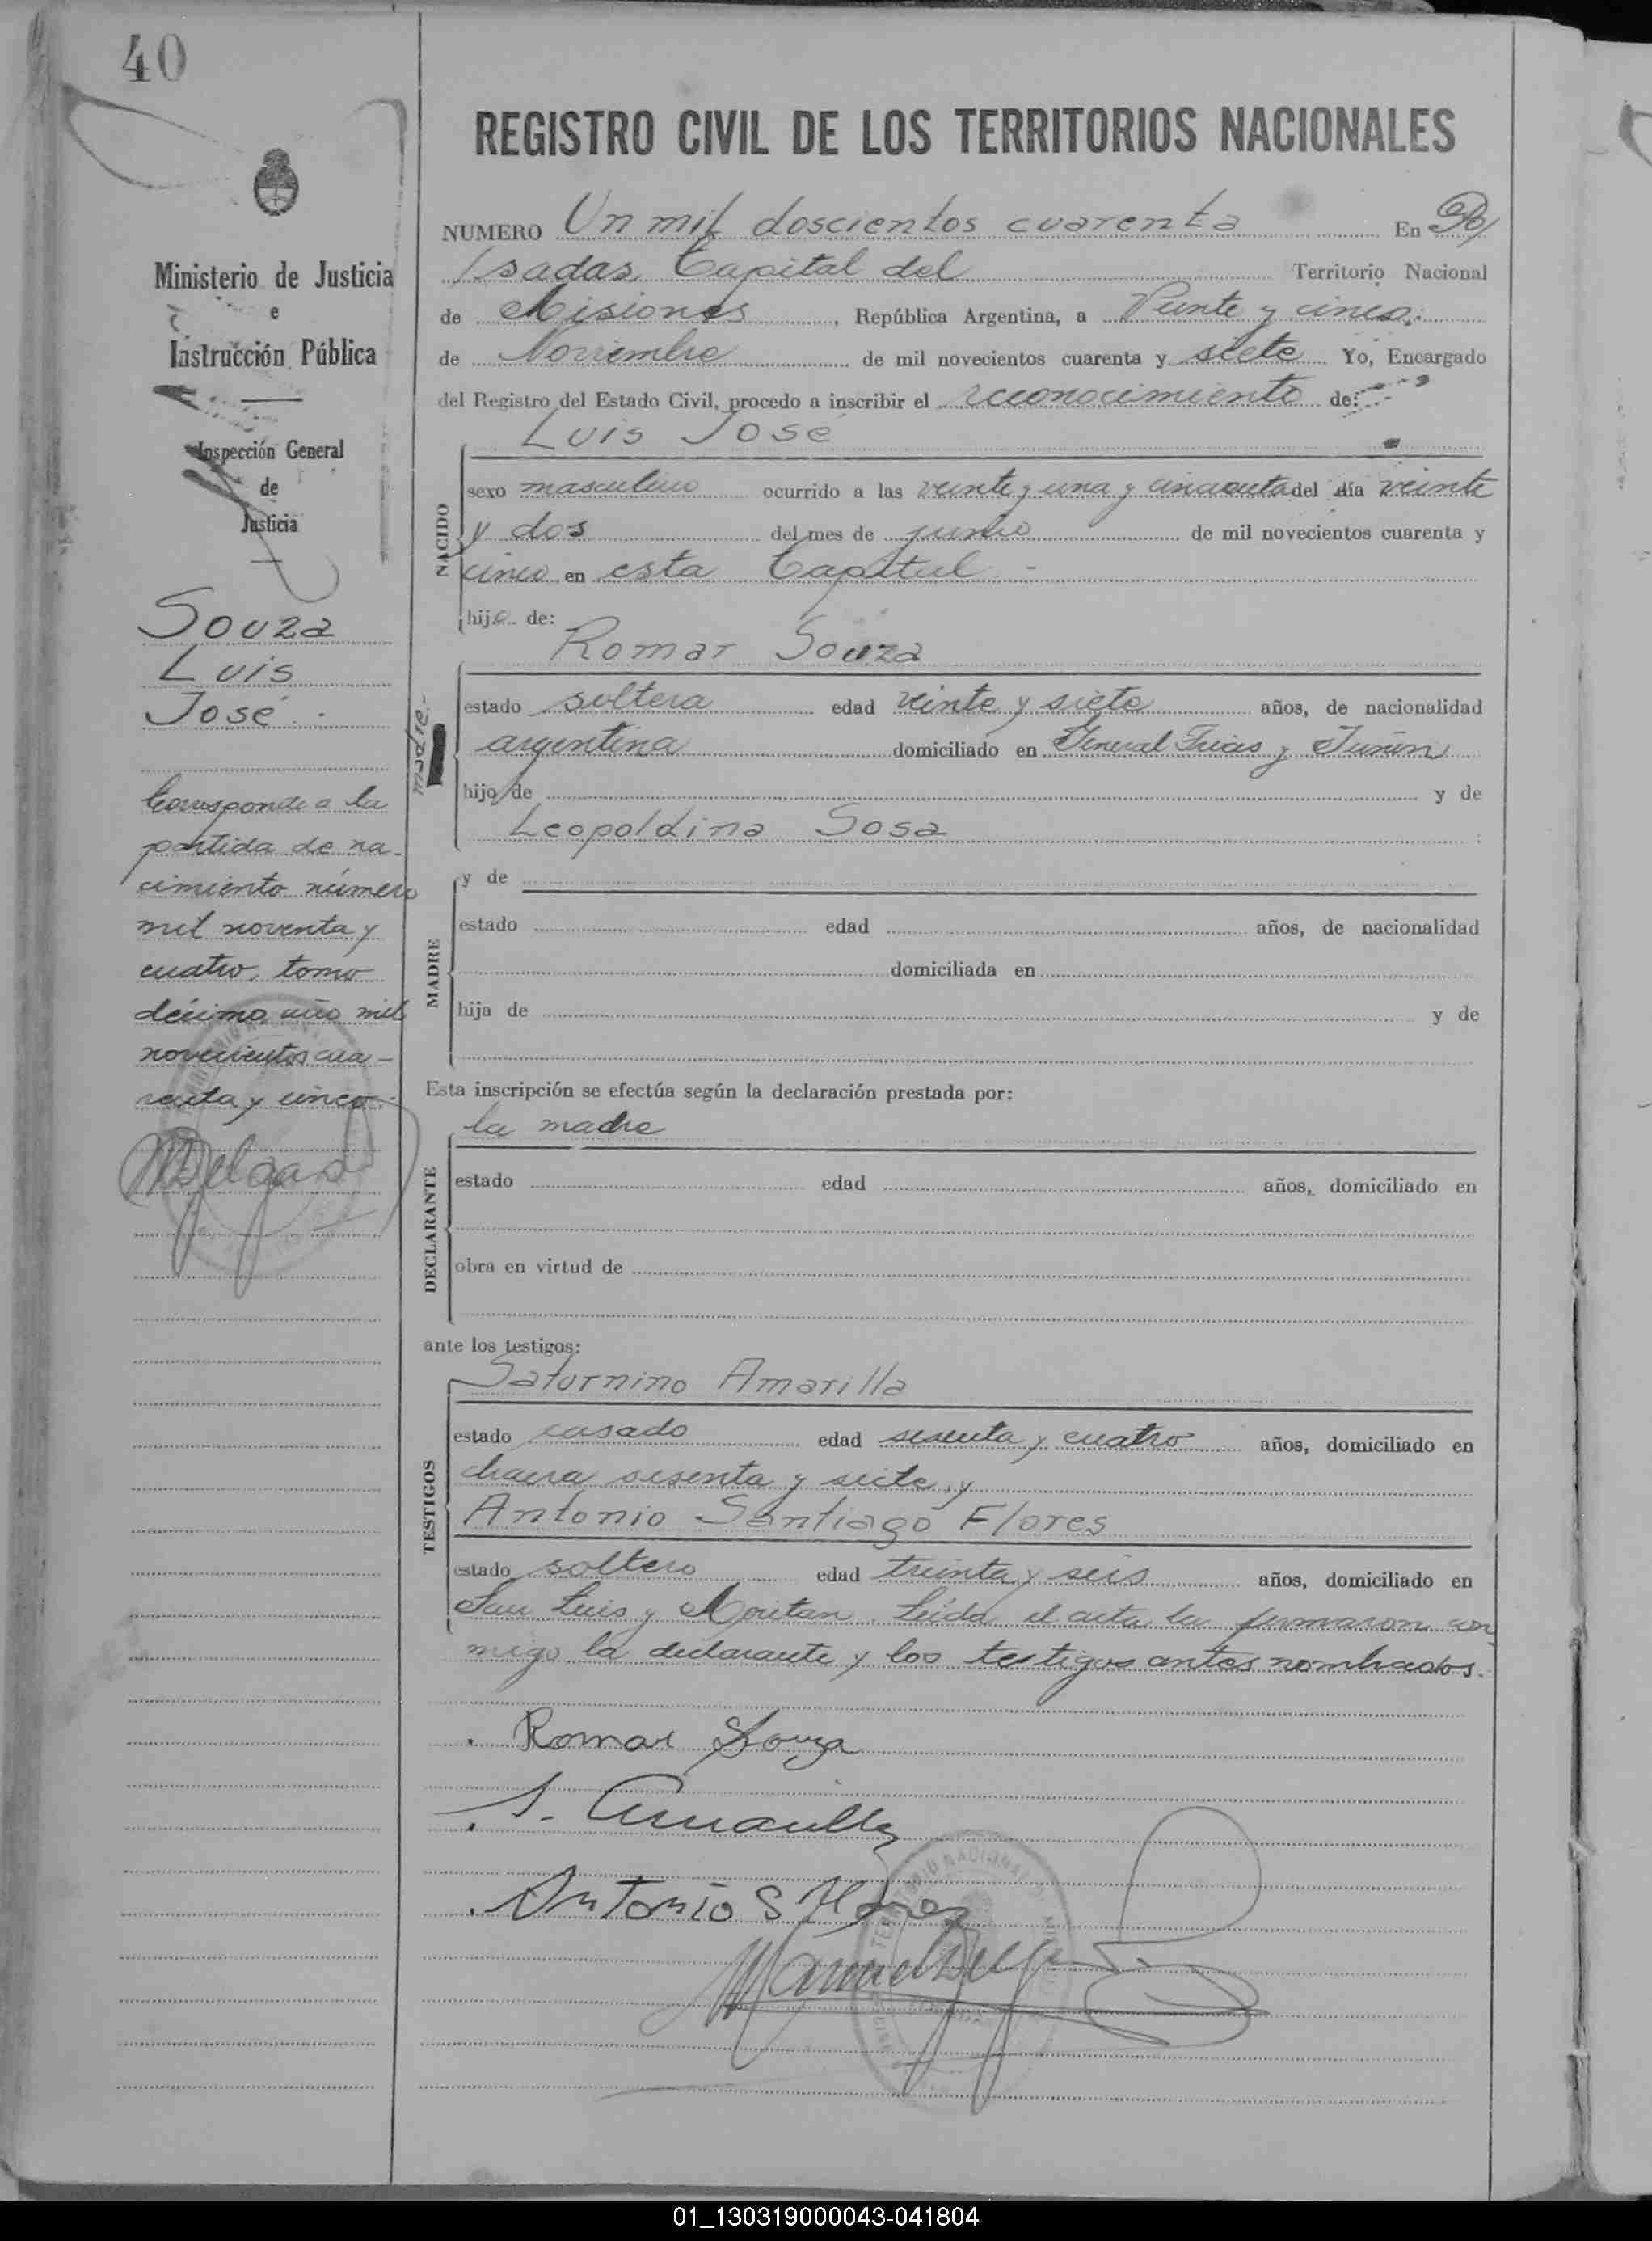 40
Ministerio de Justicia
e
Instrucción Pública
Inspección General
de
Justicia
Souza
Luis
José
Corresponde a la
partida de na-
cimiento número
mil noventa y
cuatro, tomo
décimo año mil
novecientos cua-
renta y cinco.
MDelgado
REGISTRO CIVIL DE LOS TERRITORIOS NACIONALES
NUMERO Un mil doscientos cuarenta En Po/
/sadas, Capital del Territorio Nacional
de Misiones, República Argentina, a Veinte y cinco
de Noviembre de mil novecientos cuarenta y siete Yo, Encargado
del Registro del Estado Civil, procedo a inscribir el reconocimiento de:
Luis José
NACIDO
sexo masculino ocurrido a las veinte y una y cincuenta del día veinte
y dos del mes de junio de mil novecientos cuarenta y
cinco en esta Capital.-
hijo de:
Romar Souza
madre.-
estado soltera edad veinte y siete años, de nacionalidad
argentina domiciliado en General Frias y Junin
hijo/de y de
Leopoldina Sosa
y de
MADRE
estado edad años, de nacionalidad
domiciliada en
hija de y de
Esta inscripción se efectúa según la declaración prestada por:
la madre
DECLARANTE
estado edad años, domiciliado en
obra en virtud de
ante los testigos:
Saturnino Amarilla
TESTIGOS
estado casado edad sesenta y cuatro años, domiciliado en
chacra sesenta y siete, y
Antonio Santiago Flores
estado soltero edad treinta y seis años, domiciliado en
San Luis y Moritan. Leída el acta la firmaron con-
migo la declarante y los testigos antes nombrados.
Romar Souza
S. Amarilla
Antonio S Flores
Manuel Delg
01_130319000043-041804